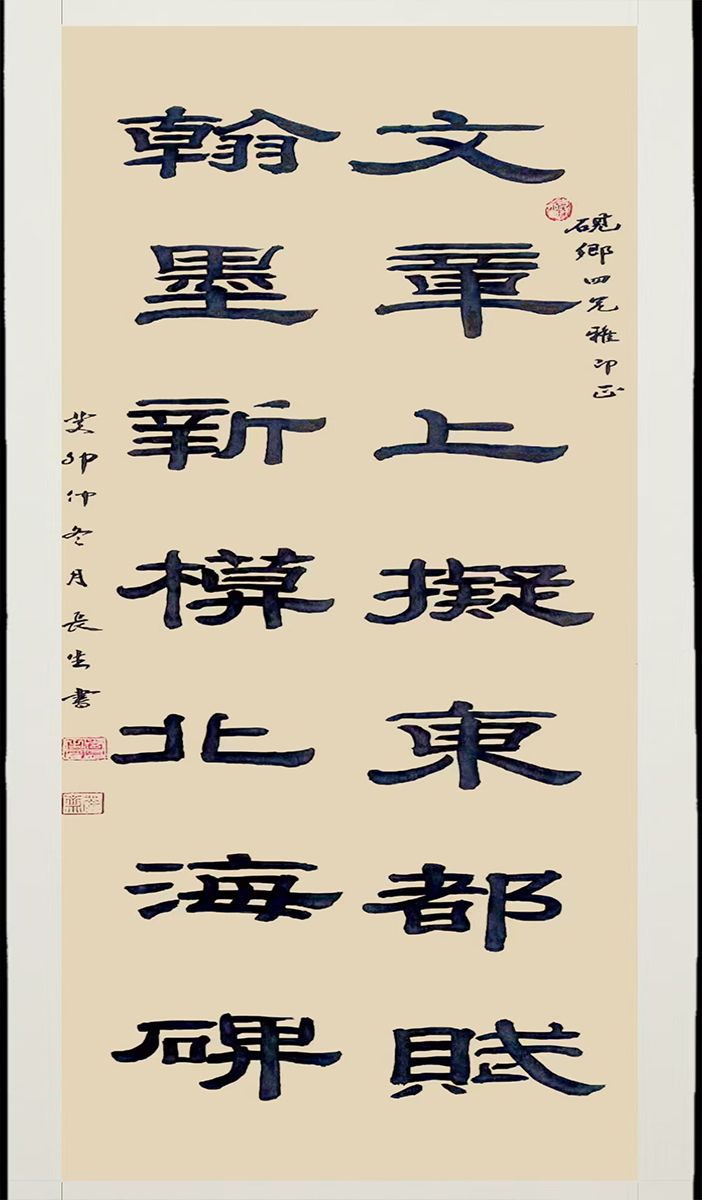 硯鄉四兄雅印正
文章上擬東都賦
翰墨新模北海碑
癸卯仲冬月長生書